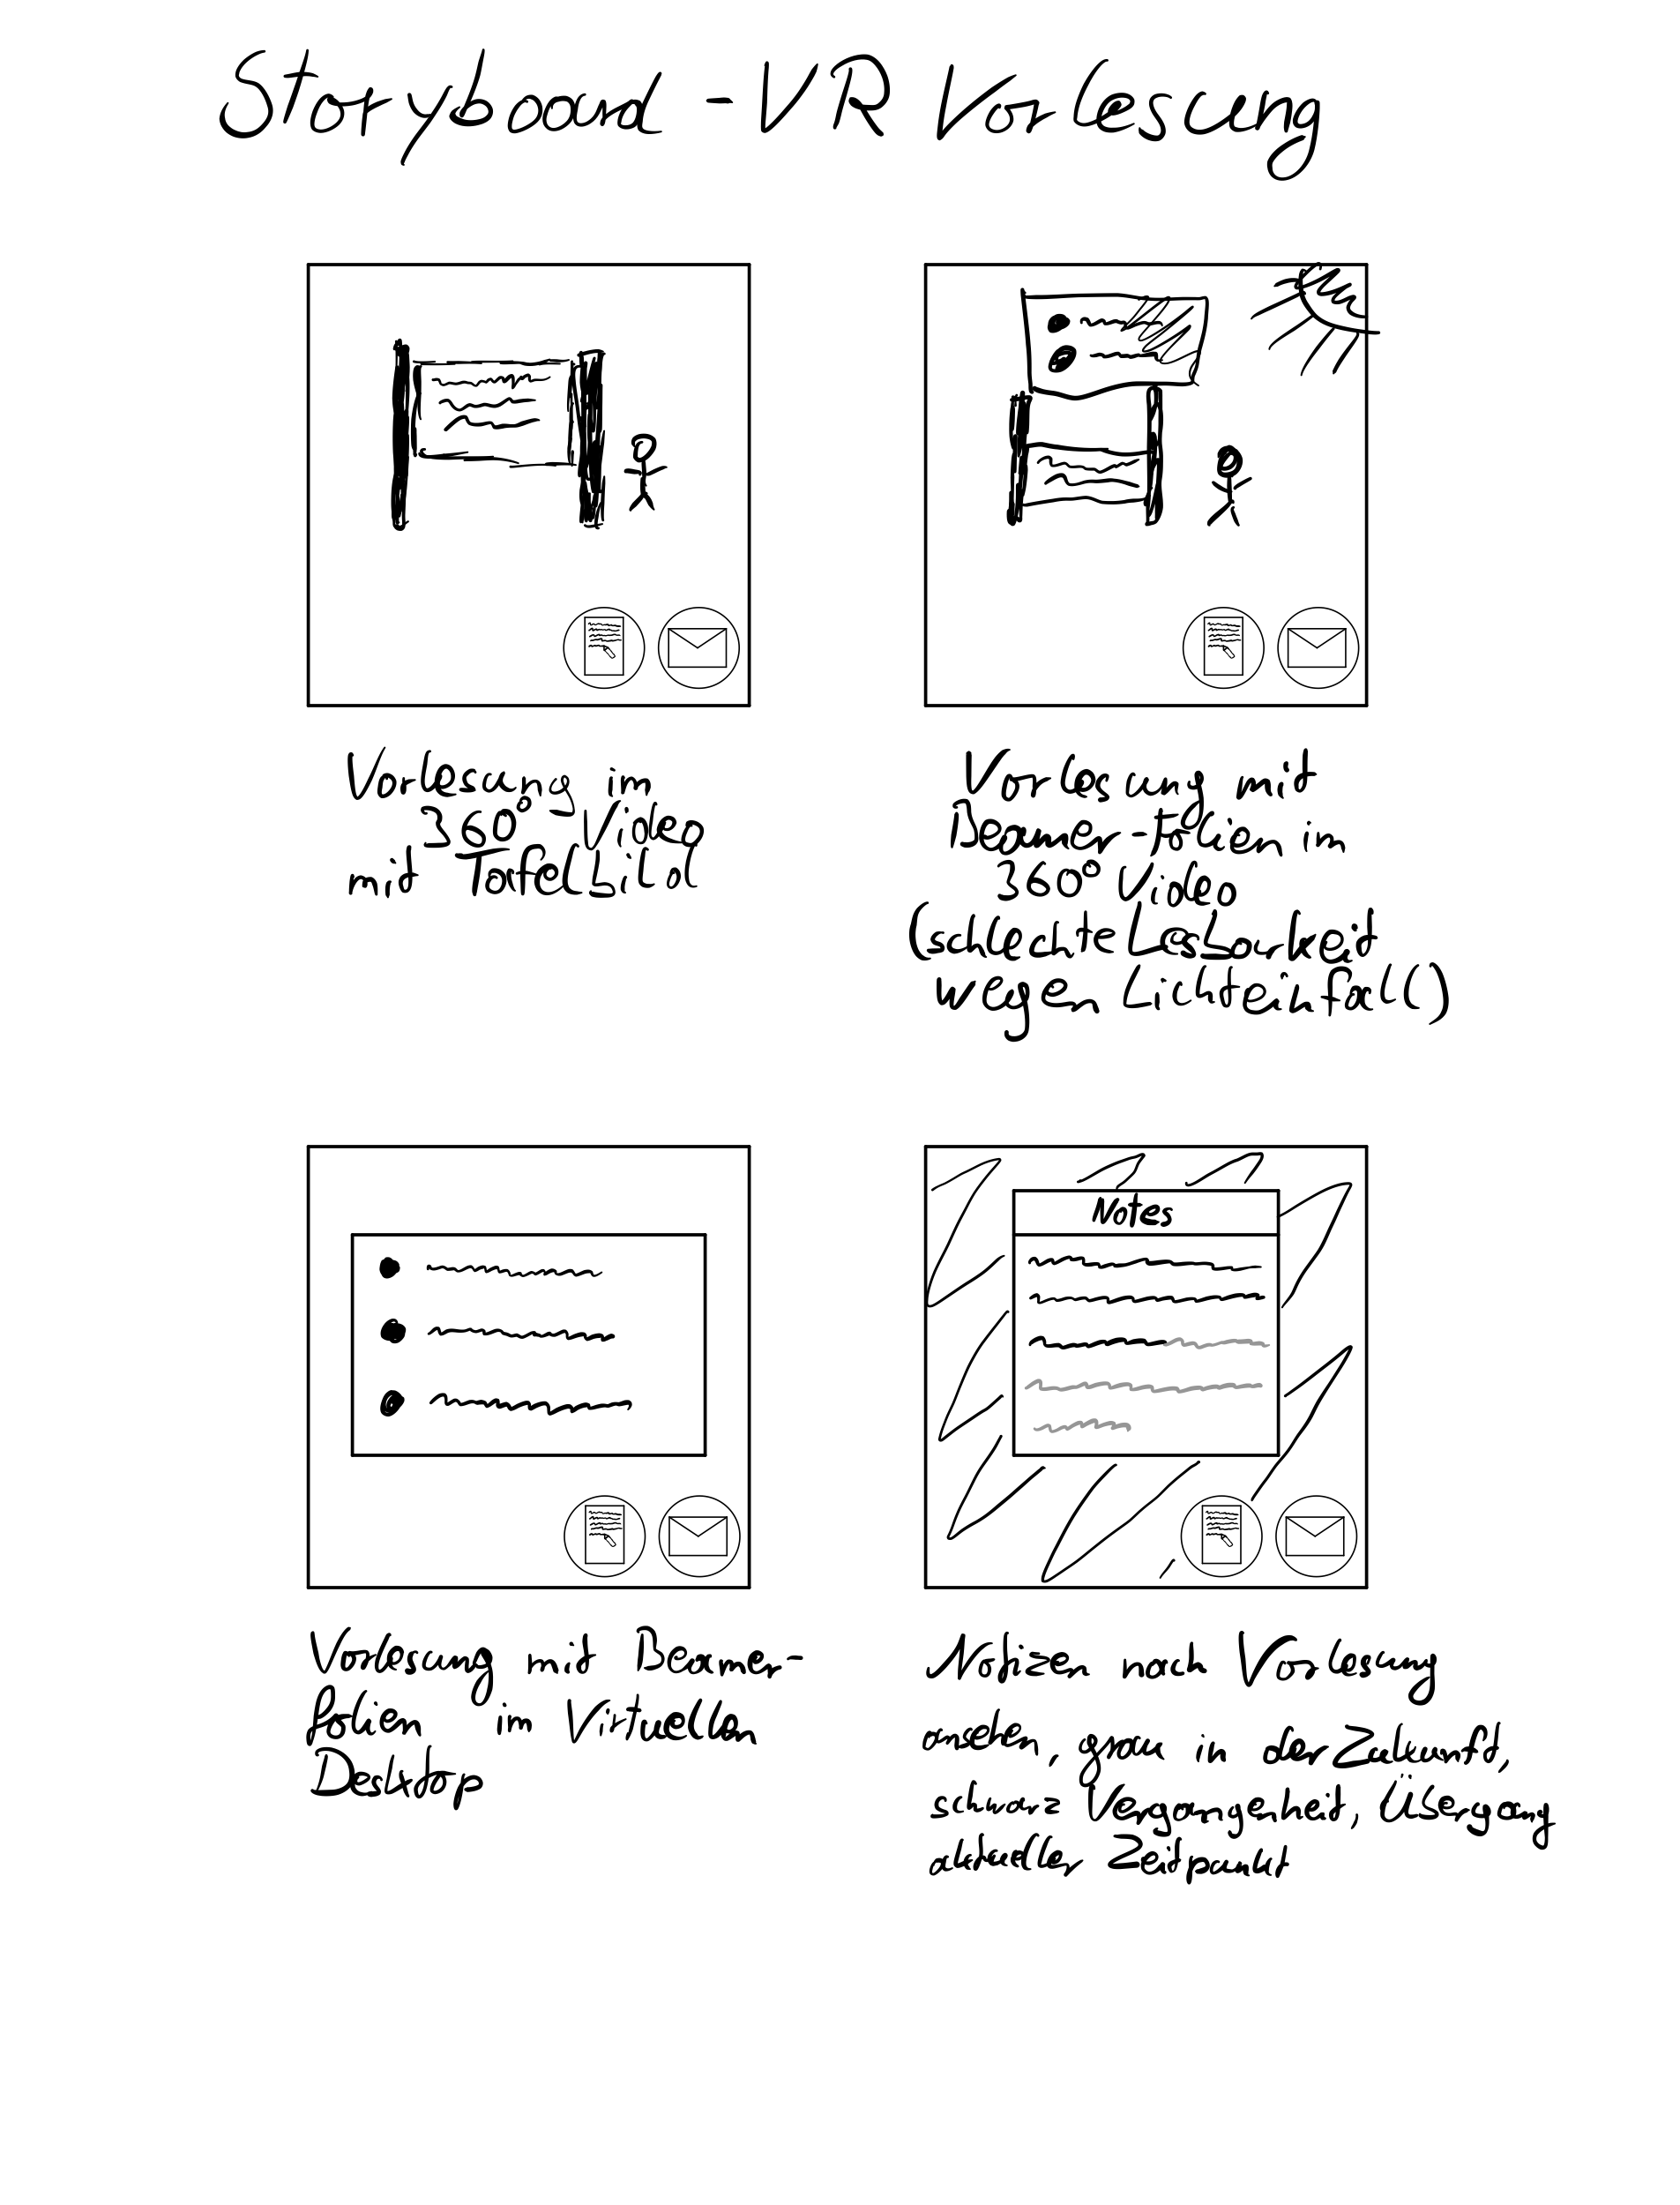 Storyboard - VR Vorlesung
Vorlesung im
360° Video
mit Tafelbild
Vorlesung mit
Beamer-Folien im
360° Video
(schlechte Lesbarkeit
wegen Lichteinfall)
Notes
Vorlesung mit Beamer-
folien im Virtuellen
Desktop
Notizen nach Vorlesung
ansehen, grau in der Zukunft,
schwarz Vergangenheit, Übergang
aktueller Zeitpunkt